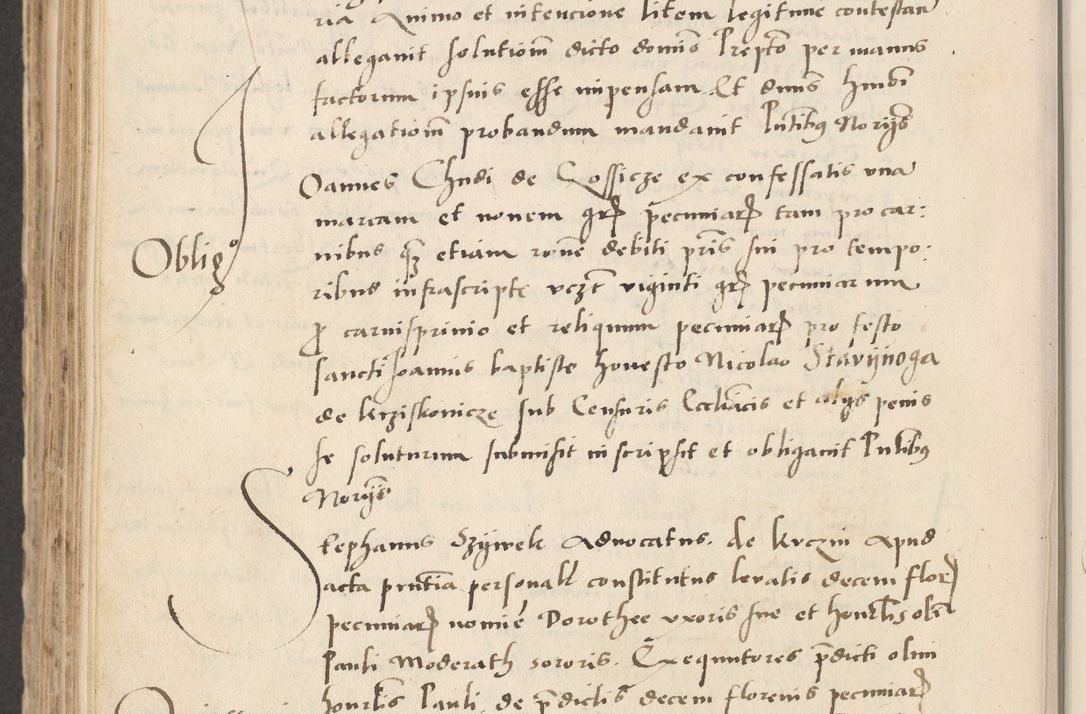 ria Animo et intencione litem legitime contestan
allegavit solutiom dicto domio Prepto per manus
factorum ipsius esse impensam Et dnus hmoi
allegatiom probandum mandavit Pntibus Norijs
Joannes Chudi de Cossicze ex confessatis una
marcam et novem gr pecuniar tam pro car:
Oblig
nibus q etiam rone debiti pris sui pro tempo:
ribus infrascripte vczt viginti gr pecuniarum
p carnisprivio et reliquum pecuniar pro festo
sancti Joannis baptiste honesto Nicolao Stavijnoga
de Krziskowicze sub Censuris Eccliacis et alijs penis
se soluturum submisit inscripsit et obligavit Pntibus
Norijs
Stephanus Szijwek Advocatus de Kvczin Apud
acta pntia personalr constitutus levatis decem flor
pecuniar nomie Dorothee uxoris sue et honrlis olim
Pauli Moderath sororis. Exequutores pdicti olim
honrlis Pauli de pdictis decem florenis pecuniar